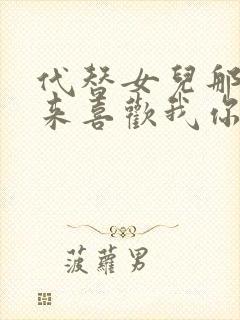 代替女兒那
来喜歡我你
菠蘿男